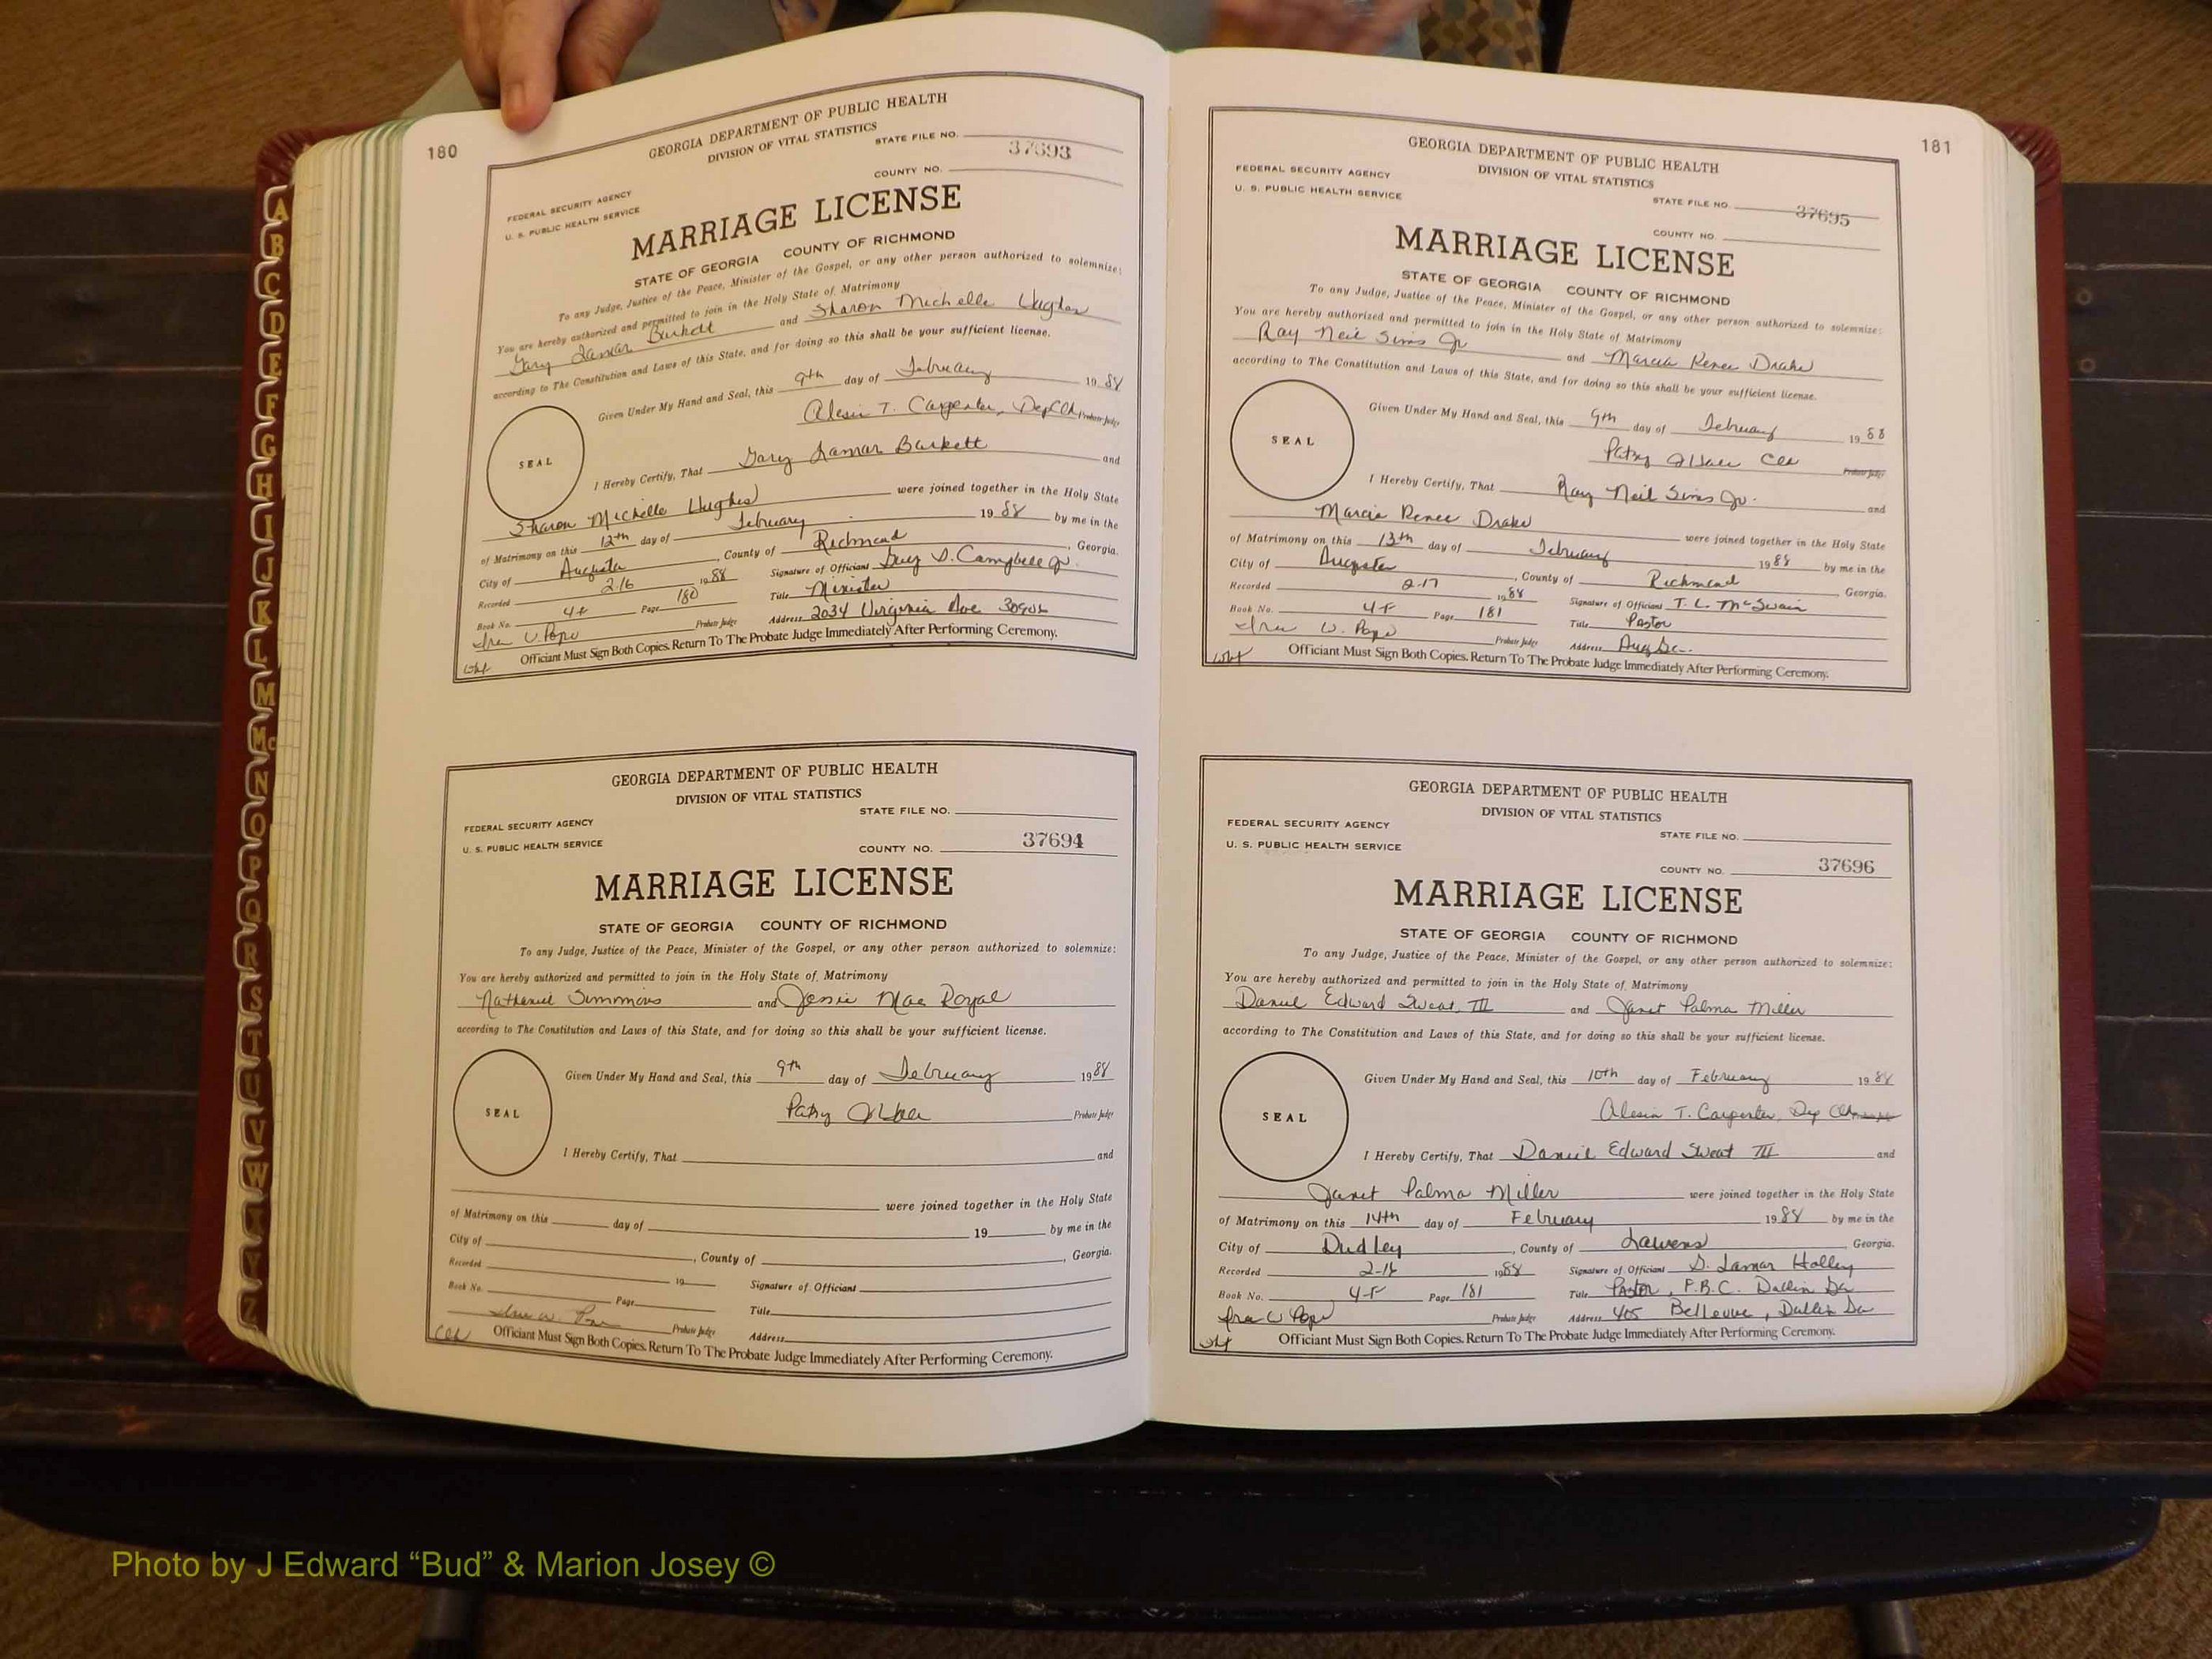 180
GEORGIA DEPARTMENT OF PUBLIC HEALTH
DIVISION OF VITAL STATISTICS
STATE FILE NO. 37693
COUNTY NO.
FEDERAL SECURITY AGENCY
U. S. PUBLIC HEALTH SERVICE
MARRIAGE LICENSE
STATE OF GEORGIA COUNTY OF RICHMOND
To any Judge, Justice of the Peace, Minister of the Gospel, or any other person authorized to solemnize:
You are hereby authorized and permitted to join in the Holy State of Matrimony
Gary Lamar Burkett and Sharon Michelle Hughes
according to The Constitution and Laws of this State, and for doing so this shall be your sufficient license.
Given Under My Hand and Seal, this 9th day of February 1988
Alesia T. Carpenter, Dep Clk Probate Judge
SEAL
I Hereby Certify, That Gary Lamar Burkett and
Sharon Michelle Hughes were joined together in the Holy State
of Matrimony on this 12th day of February 1988 by me in the
City of Augusta, County of Richmond, Georgia.
Recorded 2/6 1988 Signature of Officiant Guy D. Campbell Jr.
Book No. 4F Page 180 Title Minister
Probate Judge Address 2034 Virginia Ave
Officiant Must Sign Both Copies. Return To The Probate Judge Immediately After Performing Ceremony.
GEORGIA DEPARTMENT OF PUBLIC HEALTH
DIVISION OF VITAL STATISTICS
STATE FILE NO.
FEDERAL SECURITY AGENCY
U. S. PUBLIC HEALTH SERVICE
COUNTY NO. 37694
MARRIAGE LICENSE
STATE OF GEORGIA COUNTY OF RICHMOND
To any Judge, Justice of the Peace, Minister of the Gospel, or any other person authorized to solemnize:
You are hereby authorized and permitted to join in the Holy State of Matrimony
Nathaniel Simmons and Jessie Mae Royal
according to The Constitution and Laws of this State, and for doing so this shall be your sufficient license.
Given Under My Hand and Seal, this 9th day of February 1988
Patsy Probate Judge
SEAL
I Hereby Certify, That and
were joined together in the Holy State
of Matrimony on this day of 19 by me in the
City of , County of , Georgia.
Recorded 19 Signature of Officiant
Book No. Page Title
Probate Judge Address
Officiant Must Sign Both Copies. Return To The Probate Judge Immediately After Performing Ceremony.
181
GEORGIA DEPARTMENT OF PUBLIC HEALTH
DIVISION OF VITAL STATISTICS
FEDERAL SECURITY AGENCY
U. S. PUBLIC HEALTH SERVICE
STATE FILE NO. 37695
COUNTY NO.
MARRIAGE LICENSE
STATE OF GEORGIA COUNTY OF RICHMOND
To any Judge, Justice of the Peace, Minister of the Gospel, or any other person authorized to solemnize:
You are hereby authorized and permitted to join in the Holy State of Matrimony
Ray Neil Sims Jr and Marcia Renee Drake
according to The Constitution and Laws of this State, and for doing so this shall be your sufficient license.
Given Under My Hand and Seal, this 9th day of February 1988
Patsy Clk Probate Judge
SEAL
I Hereby Certify, That Ray Neil Sims Jr. and
Marcia Renee Drake were joined together in the Holy State
of Matrimony on this 13th day of February 1988 by me in the
City of Augusta, County of Richmond Georgia.
Recorded 2-17 1988 Signature of Officiant T. L. McSwain
Book No. 4F Page 181 Title Pastor
W. Pope Probate Judge Address
Officiant Must Sign Both Copies. Return To The Probate Judge Immediately After Performing Ceremony.
GEORGIA DEPARTMENT OF PUBLIC HEALTH
DIVISION OF VITAL STATISTICS
FEDERAL SECURITY AGENCY
U. S. PUBLIC HEALTH SERVICE
STATE FILE NO.
COUNTY NO. 37696
MARRIAGE LICENSE
STATE OF GEORGIA COUNTY OF RICHMOND
To any Judge, Justice of the Peace, Minister of the Gospel, or any other person authorized to solemnize:
You are hereby authorized and permitted to join in the Holy State of Matrimony
Daniel Edward Sweat, III and Janet Palma Miller
according to The Constitution and Laws of this State, and for doing so this shall be your sufficient license.
Given Under My Hand and Seal, this 10th day of February 1988
Alesia T. Carpenter, Dep Clk
SEAL
I Hereby Certify, That Daniel Edward Sweat III and
Janet Palma Miller were joined together in the Holy State
of Matrimony on this 14th day of February 1988 by me in the
City of Dudley, County of Lawrens Georgia.
Recorded 1988 Signature of Officiant D. Lamar Holley
Book No. 4-F Page 181 Title Pastor, F.B.C. Dublin Ga
Probate Judge Address 405 Bellevue, Dublin Ga
Officiant Must Sign Both Copies. Return To The Probate Judge Immediately After Performing Ceremony.
A
B
C
D
E
F
G
H
I
J
K
L
M
Mc
N
O
P
Q
R
S
T
U
V
W
X
Y
Z
Photo by J Edward “Bud” & Marion Josey ©